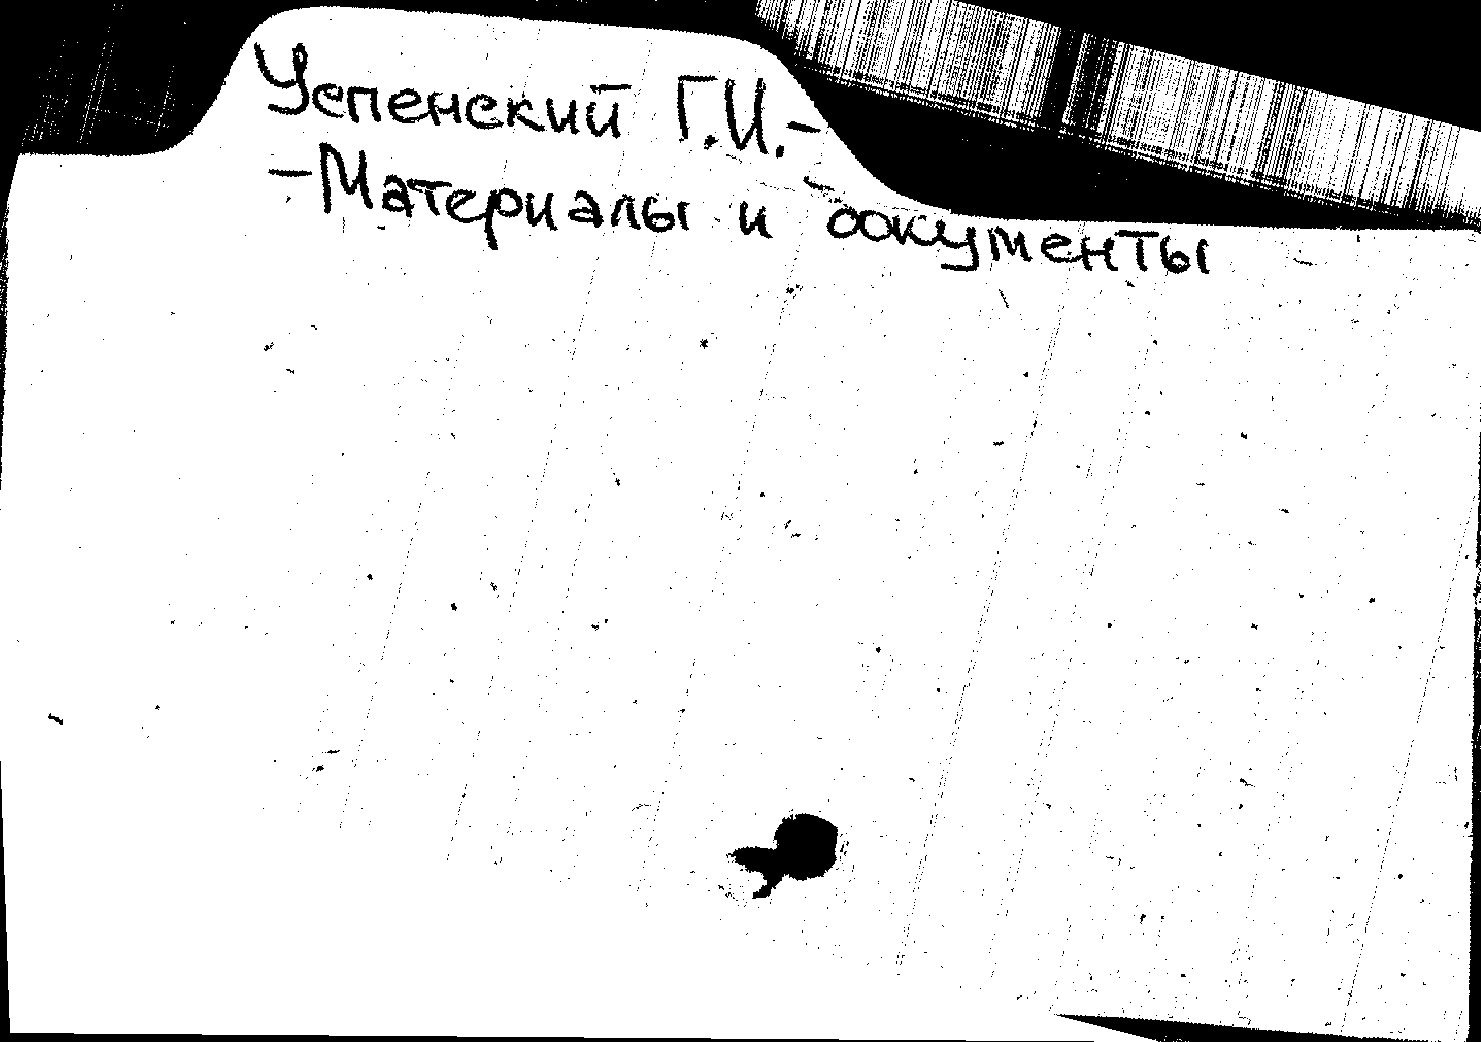 Успенский Г.И.-
-Материалы и документы